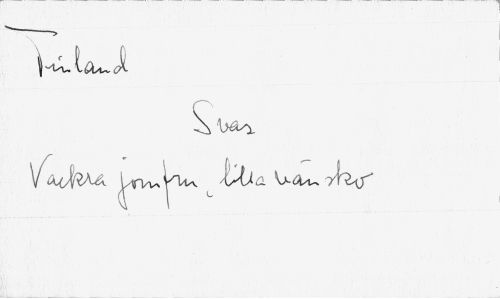 Finland
Svar
Vackra jomfru, lilla vänsko